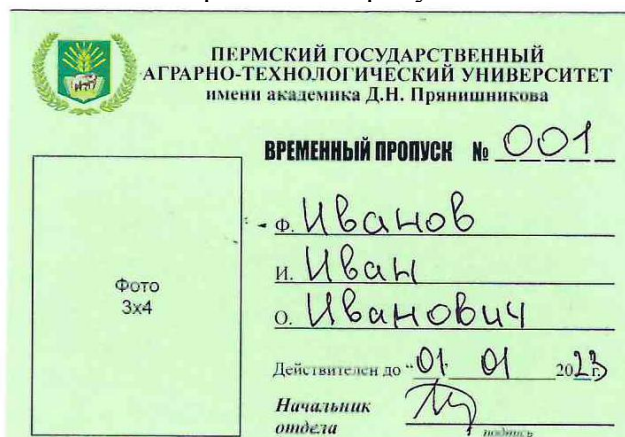 ПЕРМСКИЙ ГОСУДАРСТВЕННЫЙ
АГРАРНО-ТЕХНОЛОГИЧЕСКИЙ УНИВЕРСИТЕТ
имени академика Д.Н. Прянишникова
ВРЕМЕННЫЙ ПРОПУСК № 001
Ф. Иванов
И. Иван
О. Иванович
Фото
3х4
Действителен до "01" 01 2023г.
Начальник
отдела
подпись